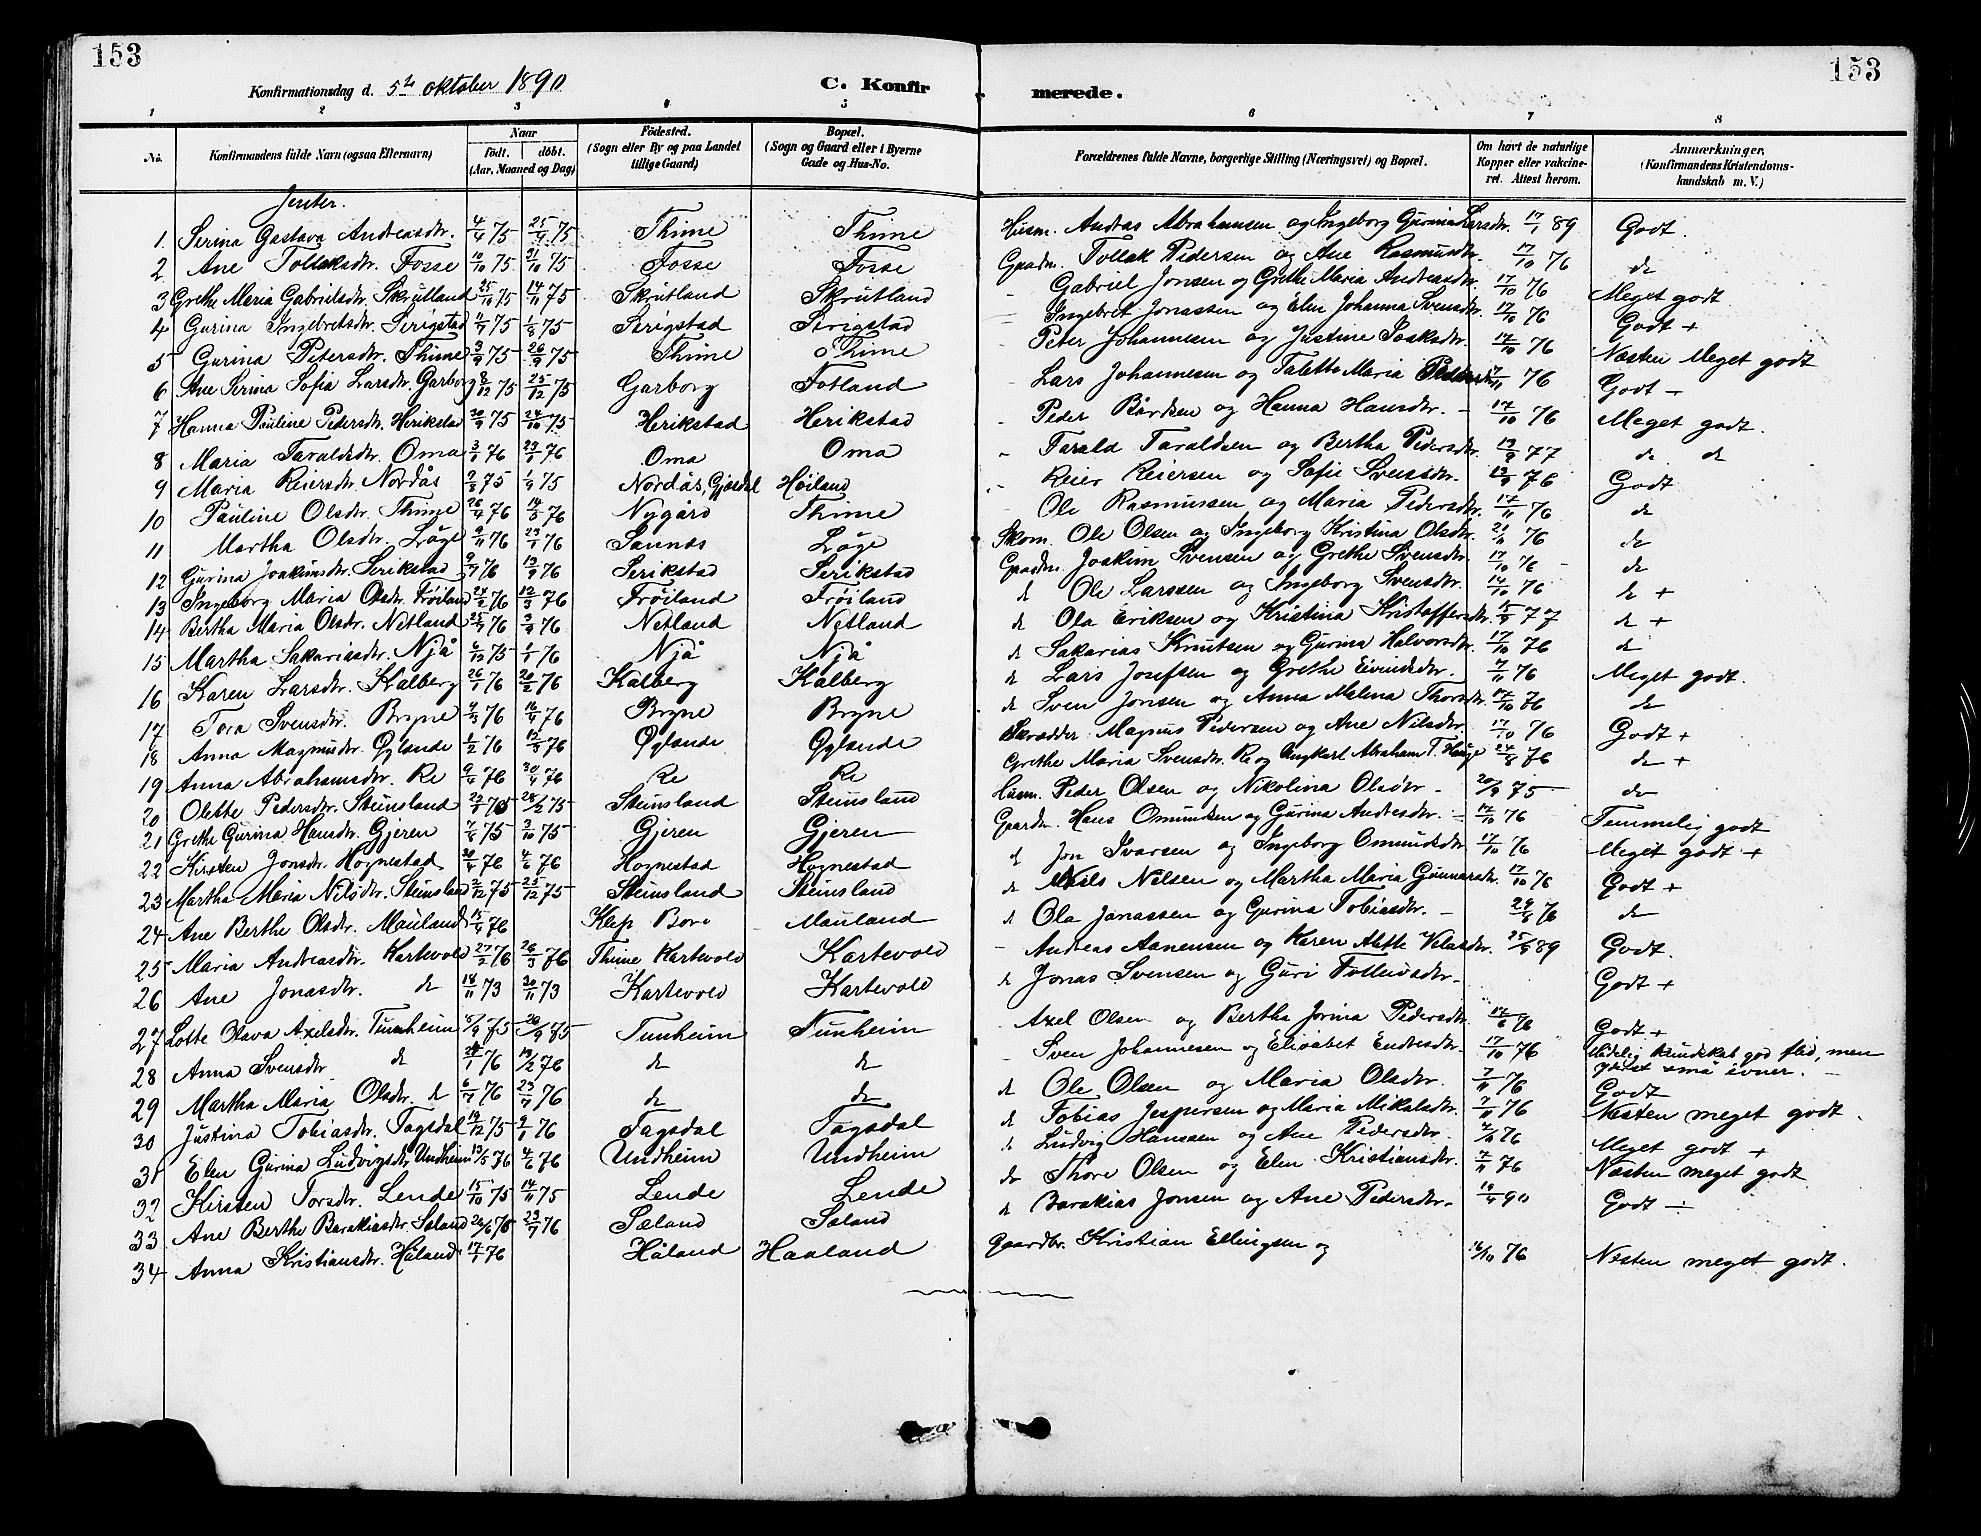 153
153
Konfirmationsdag d. 5te oktober 1890
C. Konfir merede.
1 2 3 4 5 6 7 8
No.
Konfirmandens fulde Navn (ogsaa Efternavn)
Naar
födt. döbt.
(Aar, Maaned og Dag)
Födested.
(Sogn eller By og paa Landet
tillige Gaard)
Bopæl.
(Sogn og Gaard eller i Byerne
Gade og Hus-No.
Forældrenes fulde Navne, borgerlige Stilling (Næringsvei) og Bopæl.
Om havt de naturlige
Kopper eller vakcine-
ret. Attest herom.
Anmærkninger,
(Konfirmandens Kristendoms-
kundskab m. V.)
Jenter.
1. Serina Gustava Andreasdtr. 4/4 75 25/4 75 Thime Thime Husm. Andreas Abrahamsen og Ingeborg Gurina Larsdr. 17/1 89 Godt.
2 Ane Tollaksdtr. Fosse 10/10 75 31/10 75 Fosse Fosse Gaardm. Tollak Pedersen og Ane Rasmusdtr. 17/10 76 do
3 Grethe Maria Gabrielsdtr. Skrutland 25/10 75 14/11 75 Skrutland Skrutland - Gabriel Jonsen og Grethe Maria Andreasdtr. 17/10 76 Meget godt
4 Gurina Ingebretsdtr. Serigstad 11/7 75 1/8 75 Serigstad Serigstad - Ingebret Jonassen og Elen Johanna Svensdtr. 17/10 76 Godt +
5 Gurina Petersdtr. Thime 3/9 75 26/9 75 Thime Thime - Peter Johannesen og Justine Isaksdtr. 17/10 76 Næsten Meget godt
6 Ane Serina Sofia Larsdtr. Garborg 8/12 75 25/12 75 Garborg Fotland - Lars Johannesen og Talette Maria 7/11 76 Godt -
7 Hanna Pauline Pedersdtr. Herikstad 20/9 75 24/10 75 Herikstad Herikstad - Peder Bårdsen og Hanna Hansdtr. - 17/10 76 Meget godt.
8 Maria Taraldsdtr. Oma 3/1 76 23/1 76 Oma Oma - Tarald Taraldsen og Bertha Pedersdtr. 13/9 77 do do
9 Maria Reiersdtr Nordås 9/8 75 1/9 75 Nordås, Gjesdal Høiland - Reier Reiersen og Sofie Svensdtr. 13/9 76 Godt
10 Pauline Olsdtr. Thime 26/4 76 14/5 76 Nygård Thime - Ole Rasmussen og Maria Pedersdtr. 17/11 76 do
11 Martha Olsdtr. Løge 9/11 76 23/1 76 Sannes Løge Skom. Ole Olsen og Ingeborg Kristina Olsdtr. 21/11 76 do
12 Gurina Joakimsdtr. Serikstad 9/7 76 13/9 76 Serikstad Serikstad Gaardm. Joakim Svensen og Grethe Svensdtr. 17/10 76 - do
13 Ingeborg Maria Olsdtr. Frøiland 24/2 76 12/3 76 Frøiland Frøiland d Ole Larssen og Ingeborg Svensdtr. 14/10 76 do +
14 Bertha Maria Olsdtr. Netland 25/7 76 3/9 76 Netland Netland d Ola Eriksen og Kristina Kristoffersdtr. 15/9 77 do +
15 Martha Sakariasdtr. Njå 6/12 75 1/1 76 Njå Njå d Sakarias Knutsen og Gurina Halvorsdtr. 17/10 76 do
16 Karen Larsdtr. Kalberg 26/1 76 20/2 76 Kalberg Kalberg d Lars Josefsen og Grethe Eivindsdtr. 7/11 76 Meget godt.
17 Tora Svensdtr. Bryne 4/3 76 16/4 76 Bryne Bryne d Sven Jonsen og Anna Malena Thorsdtr. 17/10 76 do
18 Anna Magnusdtr. Øglænde 1/2 76 12/3 76 Øglænde Øglænde Skrædder Magnus Pedersen og Ane Nilsdtr. 17/10 76 Godt +
19 Anna Abrahamsdtr. Re 9/4 76 30/4 76 Re Re Grethe Maria Svensdtr. Re og Ungkarl Abraham T. Hauge 24/8 76 do +
20 Olette Pedersdtr. Steinsland 22/1 75 28/2 75 Steinsland Steinsland Husm. Peder Olsen og Nikolina Olsdtr - 20/9 75 do
21 Grethe Gurina Hansdtr. Gjeren 7/6 75 3/10 75 Gjeren Gjeren Gaardm. Hans Omundsen og Gurina Andresdtr. - 17/10 76 Temmelig godt
22 Kirsten Jonsdtr. Hognestad 30/4 76 4/6 76 Hognestad Hognestad d Jon Ivarsen og Ingeborg Omundsdtr 17/10 76 Meget godt +
23 Martha Maria Nilsdtr. Steinsland 2/12 75 25/12 75 Steinsland Steinsland d Nils Nilsen og Martha Maria Gunnarsdtr. 17/10 76 Godt +
24 Ane Berthe Olsdtr. Mauland 15/4 76 Klep Bore Mauland d Ola Jonassen og Gurina Tobiasdtr. - 29/8 76 do
25 Maria Andreasdtr. Kartevold 27/2 76 26/3 76 Thime Kartevold Kartevold - Andreas Aanensen og Karen Alette Velasdtr. 25/9 89 Godt.
26 Ane Jonasdtr. do 18/11 73 30/11 73 Kartevold Kartevold d Jonas Svensen og Guri Tolleivsdtr. Godt +
27 Lotte Olava Axelsdtr. Tunheim 5/9 75 26/9 75 Tunheim Tunheim - Axel Olsen og Bertha Jorina Pedersdtr. 17/6 76 Godt +
28 Anna Svensdtr do 21/1 76 13/2 76 do do - Sven Johannesen og Elisabet Endresdtr. 17/10 76 Mådelig kundskab god flid, men
små evner. -
29 Martha Maria Olsdtr. do 6/7 76 23/7 76 do do d Ole Olsen og Maria Olsdtr. 7/11 76 Godt
30 Justina Tobiasdtr. Tagsdal 19/12 75 9/1 76 Tagsdal Tagsdal d Tobias Jespersen og Maria Mikalsdtr. 7/11 76 Næsten meget godt.
31 Elen Gurina Ludvigsdtr Undheim 13/5 76 4/6 76 Undheim Undheim d Ludvig Hanssen og Ane Pedersdtr. 7/11 76 Meget godt +
32 Kirsten Torsdtr. Lende 15/10 75 14/11 75 Lende Lende do Thore Olsen og Elen Kristiansdtr. 7/11 76 Næsten meget godt
33 Ane Berthe Barakiasdtr Søland 24/6 76 23/7 76 Sæland Søland d Barakias Jonsen og Ane Pedersdtr. 19/4 90 Godt -
34 Anna Kristiansdtr. Håland 17/1 76 Håland Haaland Gaardbr. Kristian Ellingsen og 16/10 76 Næsten meget godt.